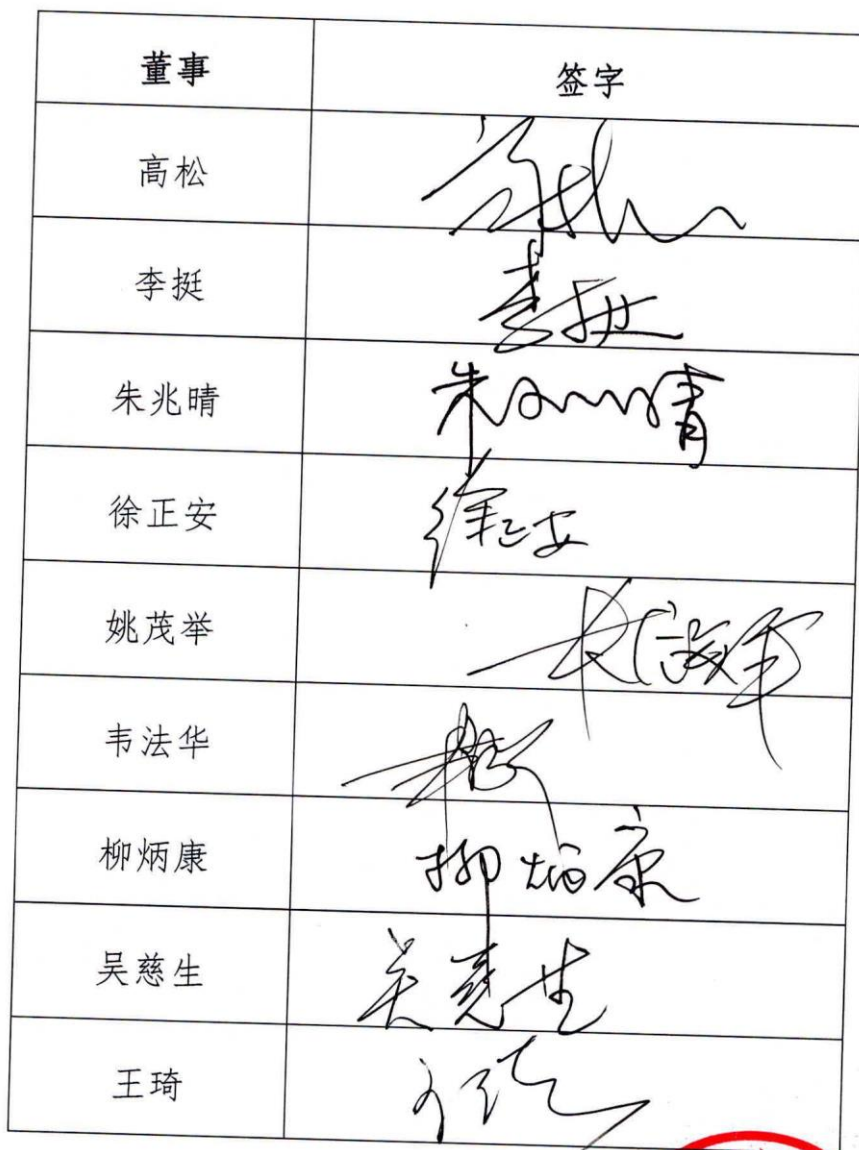 董事 签字
高松
李挺
朱兆晴 朱兆晴
徐正安 徐正安
姚茂举
韦法华
柳炳康 柳炳康
吴慈生 吴慈生
王琦